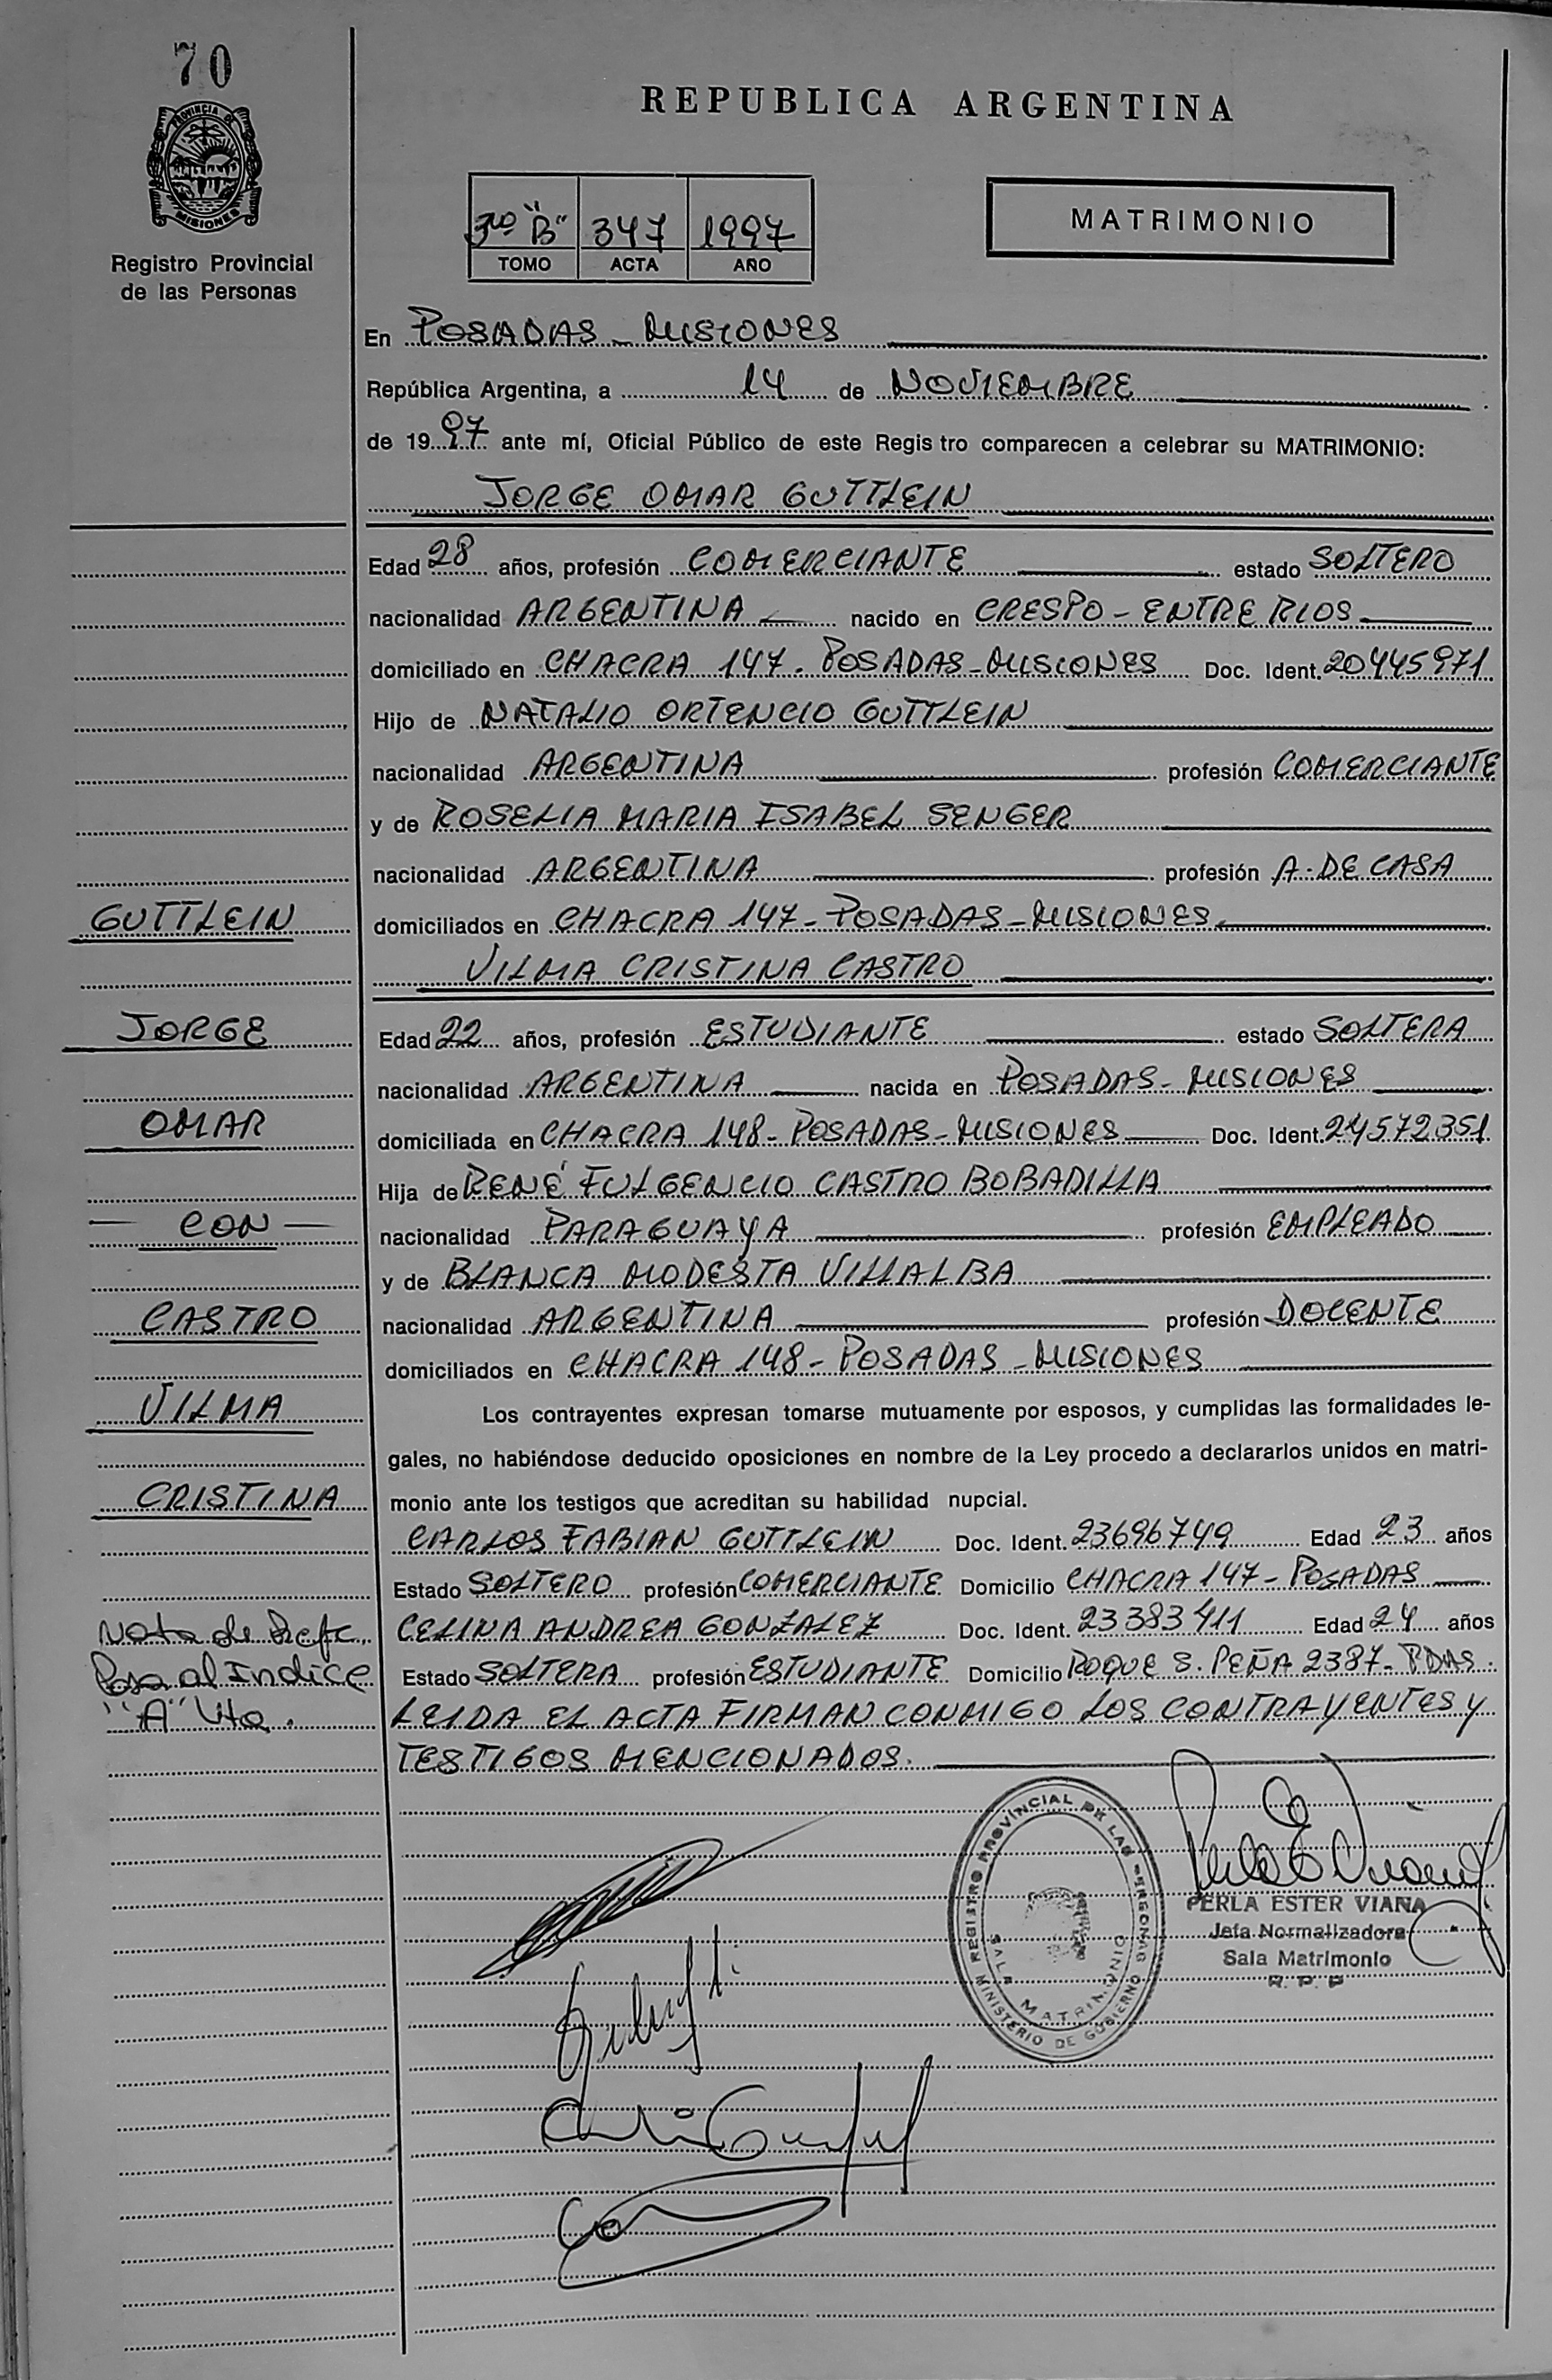 70
PROVINCIA DE
MISIONES
Registro Provincial
de las Personas
REPUBLICA ARGENTINA
3ro "B" 347 1997
TOMO ACTA AÑO
MATRIMONIO
En POSADAS - MISIONES
República Argentina, a 14 de NOVIEMBRE
de 1997 ante mí, Oficial Público de este Regis tro comparecen a celebrar su MATRIMONIO:
JORGE OMAR GUTTLEIN
Edad 28 años, profesión COMERCIANTE estado SOLTERO
nacionalidad ARGENTINA nacido en CRESPO - ENTRE RIOS
domiciliado en CHACRA 147 - POSADAS - MISIONES Doc. Ident. 20445971
Hijo de NATALIO ORTENCIO GUTTLEIN
nacionalidad ARGENTINA profesión COMERCIANTE
y de ROSELIA MARIA ISABEL SENGER
nacionalidad ARGENTINA profesión A. DE CASA
domiciliados en CHACRA 147 - POSADAS - MISIONES
VILMA CRISTINA CASTRO
Edad 22 años, profesión ESTUDIANTE estado SOLTERA
nacionalidad ARGENTINA nacida en POSADAS - MISIONES
domiciliada en CHACRA 148 - POSADAS - MISIONES Doc. Ident. 24572351
Hija de RENÉ FULGENCIO CASTRO BOBADILLA
nacionalidad PARAGUAYA profesión EMPLEADO
y de BLANCA MODESTA VILLALBA
nacionalidad ARGENTINA profesión DOCENTE
domiciliados en CHACRA 148 - POSADAS - MISIONES
Los contrayentes expresan tomarse mutuamente por esposos, y cumplidas las formalidades le-
gales, no habiéndose deducido oposiciones en nombre de la Ley procedo a declararlos unidos en matri-
monio ante los testigos que acreditan su habilidad nupcial.
CARLOS FABIAN GUTTLEIN Doc. Ident. 23696749 Edad 23 años
Estado SOLTERO profesión COMERCIANTE Domicilio CHACRA 147 - POSADAS
CELINA ANDREA GONZALEZ Doc. Ident. 23383411 Edad 24 años
Estado SOLTERA profesión ESTUDIANTE Domicilio ROQUE S. PEÑA 2387 - PDAS.
LEIDA EL ACTA FIRMAN CONMIGO LOS CONTRAYENTES Y
TESTIGOS MENCIONADOS.
GUTTLEIN
JORGE
OMAR
— CON —
CASTRO
VILMA
CRISTINA
Nota de Refc.
Pasa al Indice
"A" Vta.
REGISTRO PROVINCIAL DE LAS PERSONAS
SALA MATRIMONIO
MINISTERIO DE GOBIERNO
PERLA ESTER VIANA
Jefa Normalizadora
Sala Matrimonio
R. P. P